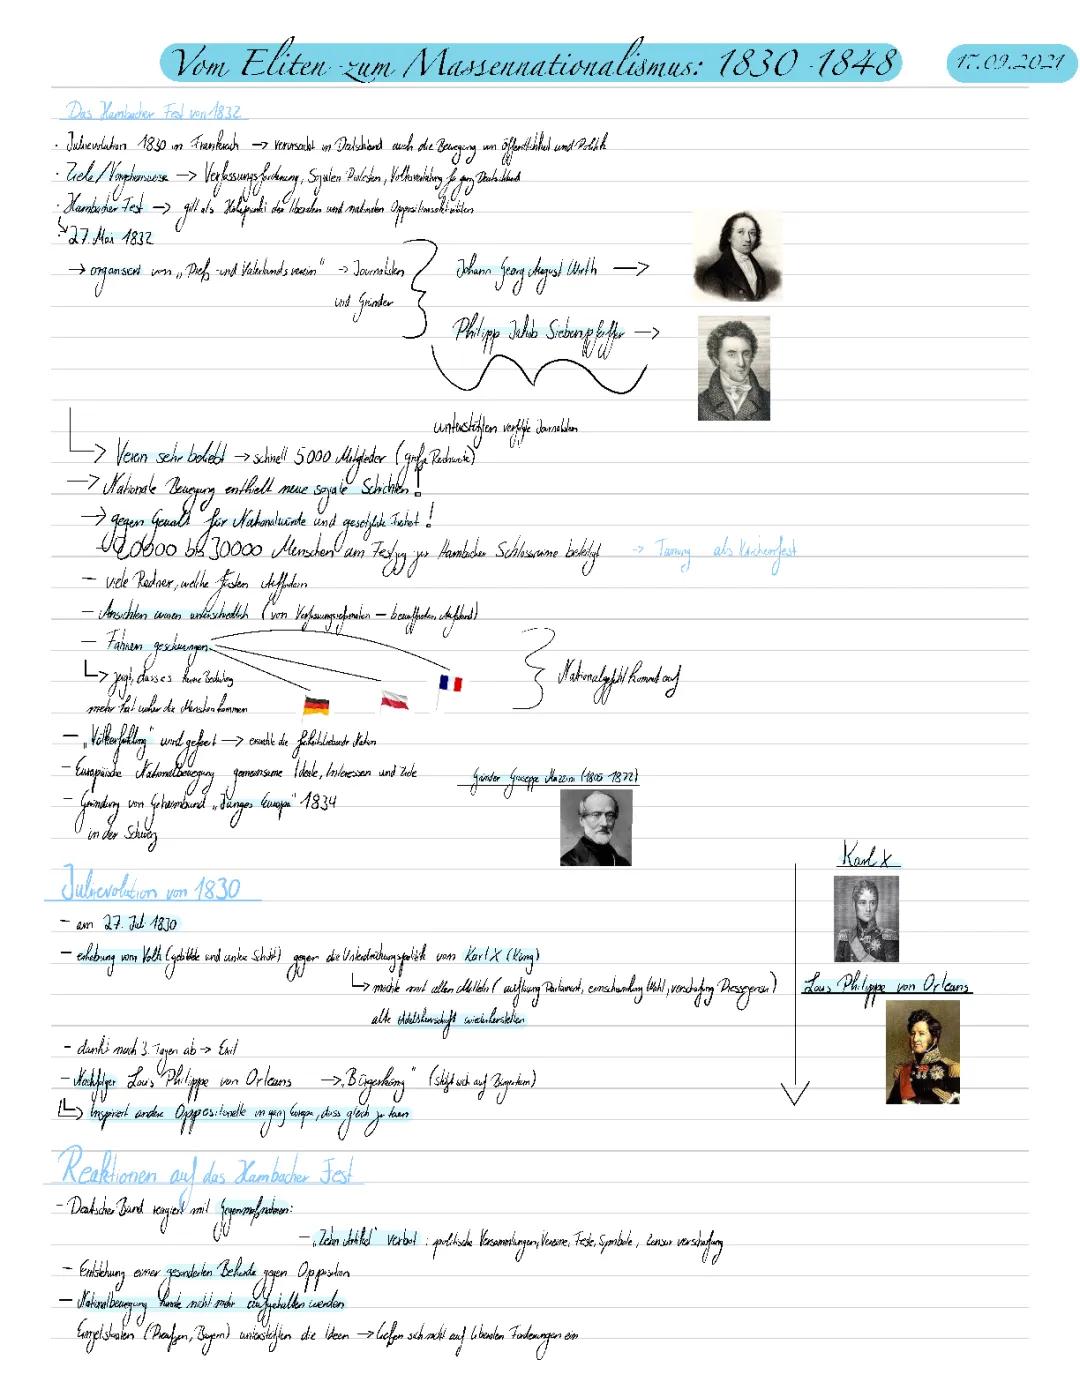 Vom Eliten- zum Massennationalismus: 1830-1848
17.09.2021
Das Hambacher Fest von 1832
· Julirevolution 1830 in Frankreich → verursacht in Deutschland auch die Bewegung von öffentlichkeit und Politik
· Ziele/Vorgehensweise → Verfassungsforderung, Sozialen Protesten, Volksvertretung für ganz Deutschland
· Hambacher Fest → gilt als Höhepunkt der liberalen und nationalen Oppositionsaktivitäten
27. Mai 1832
→ organisiert von „Preß- und Vaterlandsverein" → Journalisten
und Gründer
Johann Georg August Wirth →
Philipp Jakob Siebenpfeiffer →
unterstützten verfolgte Journalisten
→ Verein sehr beliebt → schnell 5000 Mitglieder (große Reichweite)
→ Nationale Bewegung enthielt neue soziale Schichten!
→ gegen Gewalt für Nationalwürde und gesetzliche Freiheit!
20000 bis 30000 Menschen am Festzug zur Hambacher Schlossruine beteiligt → Tarnung als Kirchenfest
- viele Redner, welche Fürsten
- Ansichten waren unterschiedlich (von Verfassungsreformen - bewaffneten Aufstand)
- Fahnen geschwungen
↳ zeigt, dass es keine Bedeutung
mehr hat woher die Menschen kommen
Nationalgefühl kommt auf
- „Völkerfrühling" wird gefeiert → erwachte die freiheitsliebende Nation
- Europäische Nationalbewegung gemeinsame Ideale, Interessen und Ziele
Gründer Giuseppe Mazzini (1805-1872)
- Gründung von Geheimbund „Junges Europa" 1834
in der Schweiz
Karl X
Julirevolution von 1830
- am 27. Juli 1830
- erhebung vom Volk (gebildete und untere Schicht) gegen die Unterdrückungspolitik von Karl X (König)
↳ möchte mit allen Mitteln (auflösung Parlament, einschränkung Wahl, verschärfung Pressezensur)
Louis Philippe von Orleans
alte Adelsherrschaft wiederherstellen
- dankt nach 3. Tagen ab → Exil
- Nachfolger Louis Philippe von Orleans → „Bürgerkönig" (stützt sich auf Bürgertum)
↳ Inspiriert andere Oppositionelle in ganz Europa, dass gleich zu tuen
Reaktionen auf das Hambacher Fest
- Deutscher Bund reagiert mit Gegenmaßnahmen:
- „Zehn Artikel" verbot: politische Versammlungen, Vereine, Feste, Symbole, Zensur verschärfung
- Entstehung einer gesonderten Behörde gegen Opposition
- Nationalbewegung konnte nicht mehr aufgehalten werden
Einzelstaaten (Preußen, Bayern) unterstützten die Ideen → ließen sich nicht auf liberalen Forderungen ein